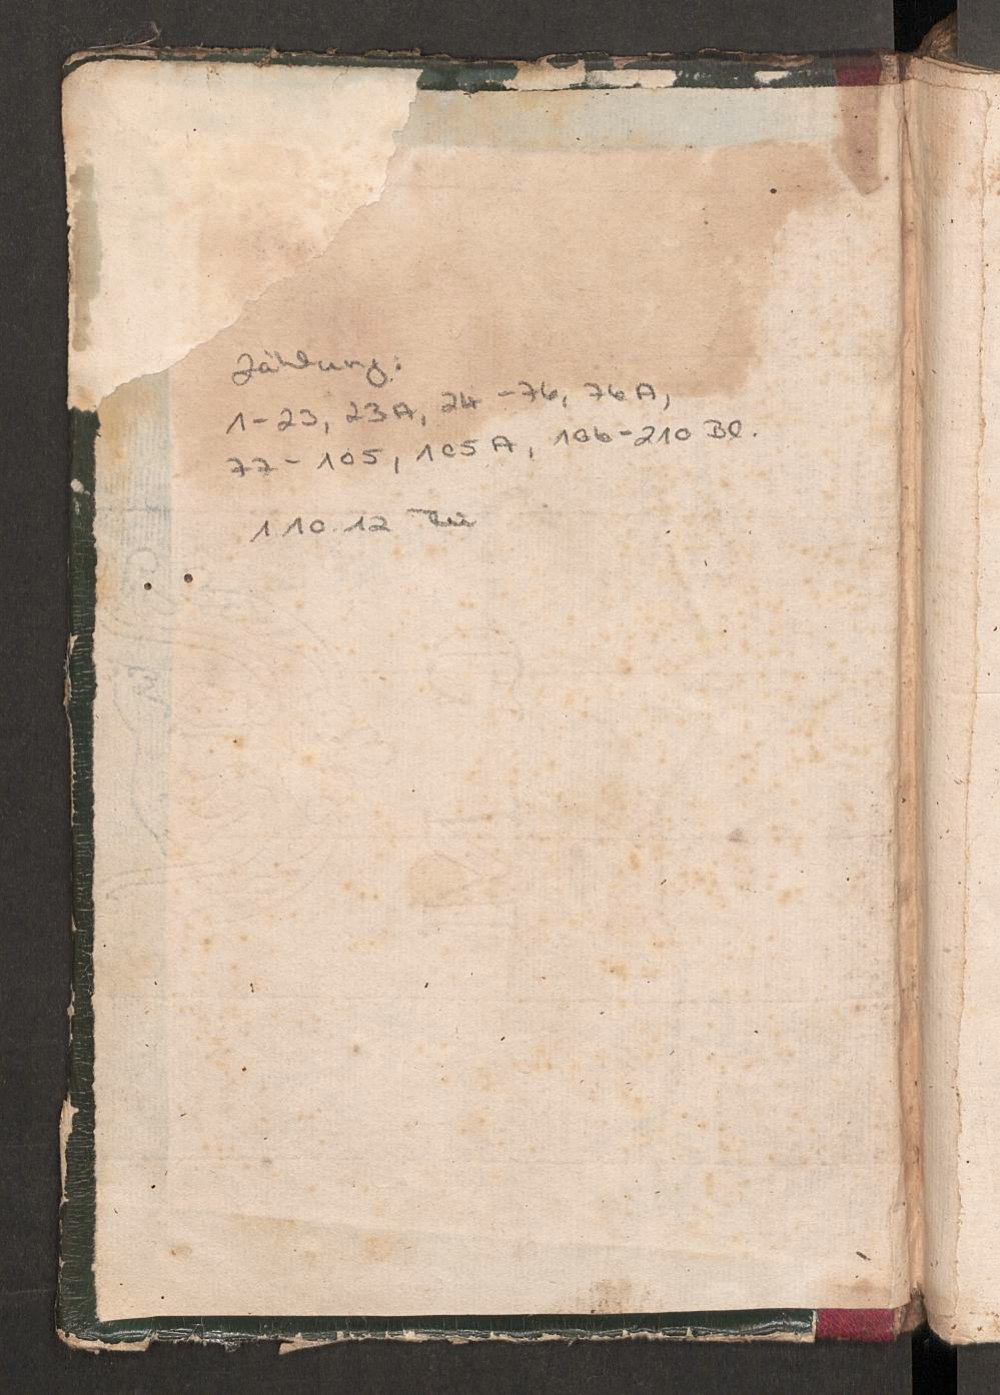 Zählung:
1-23, 23A, 24-76, 76A,
77-105, 105A, 106-210 Bl.
1.10.12